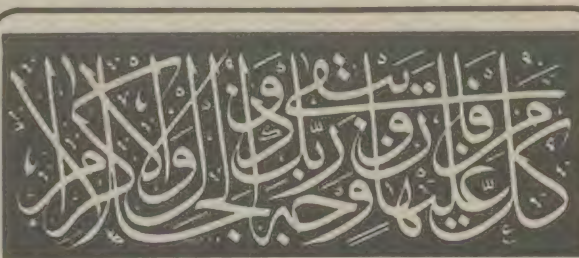 كُلُّ مَنْ عَلَيْهَا فَانٍ وَيَبْقَىٰ وَجْهُ رَبِّكَ ذُو الْجَلَالِ وَالْإِكْرَامِ